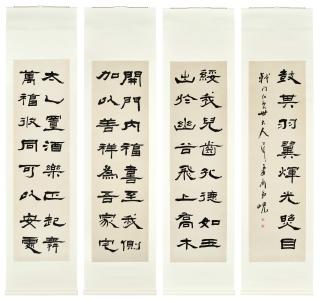 太乙置酒樂正起舞
萬福攸同可以安處
開門內福喜至我側
加以善祥為吾家宅
綏我兒齒孔德如玉
出於幽谷飛上高木
鼓其羽翼輝光照目